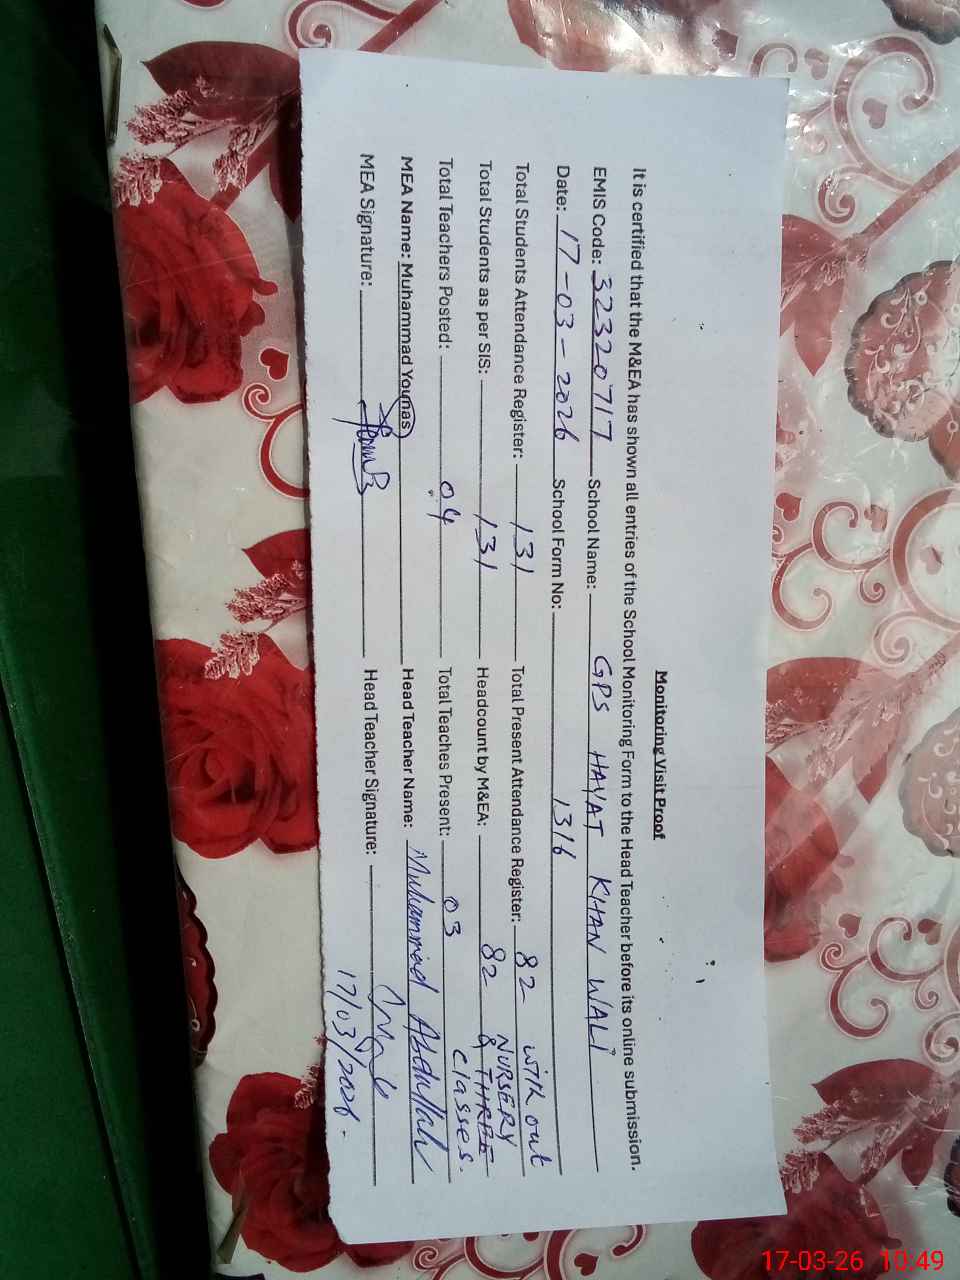 Monitoring Visit Proof
It is certified that the M&EA has shown all entries of the School Monitoring Form to the Head Teacher before its online submission.
EMIS Code: 32320717 School Name: GPS HAYAT KHAN WALI
Date: 17-03-2026 School Form No: 1316
Total Students Attendance Register: 131 Total Present Attendance Register: 82 with out
Total Students as per SIS: 131 Headcount by M&EA: 82 NURSERY & THREE
Total Teachers Posted: 04 Total Teaches Present: 03 classes.
MEA Name: Muhammad Younas Head Teacher Name: Muhammad Abdullah
MEA Signature: Head Teacher Signature:
17/03/2026.
17-03-26 10:49